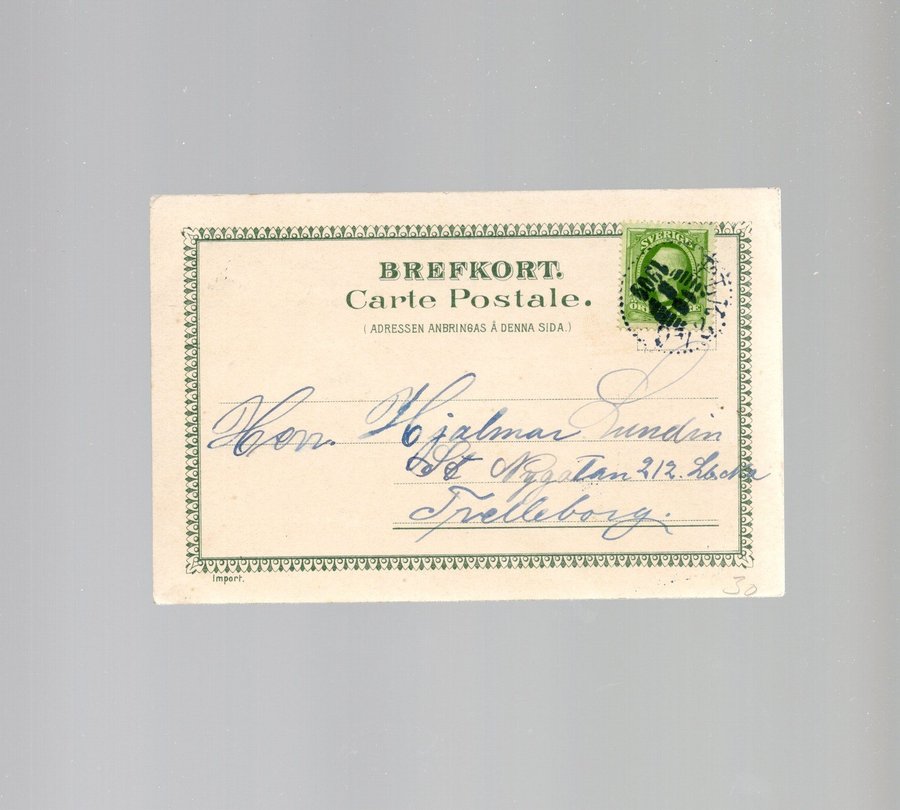 BREFKORT.
Carte Postale.
(ADRESSEN ANBRINGAS Å DENNA SIDA.)
SVERIGE
Herr. Hjalmar Lundin
St Nygatan 212.
Trelleborg.
Import.
30